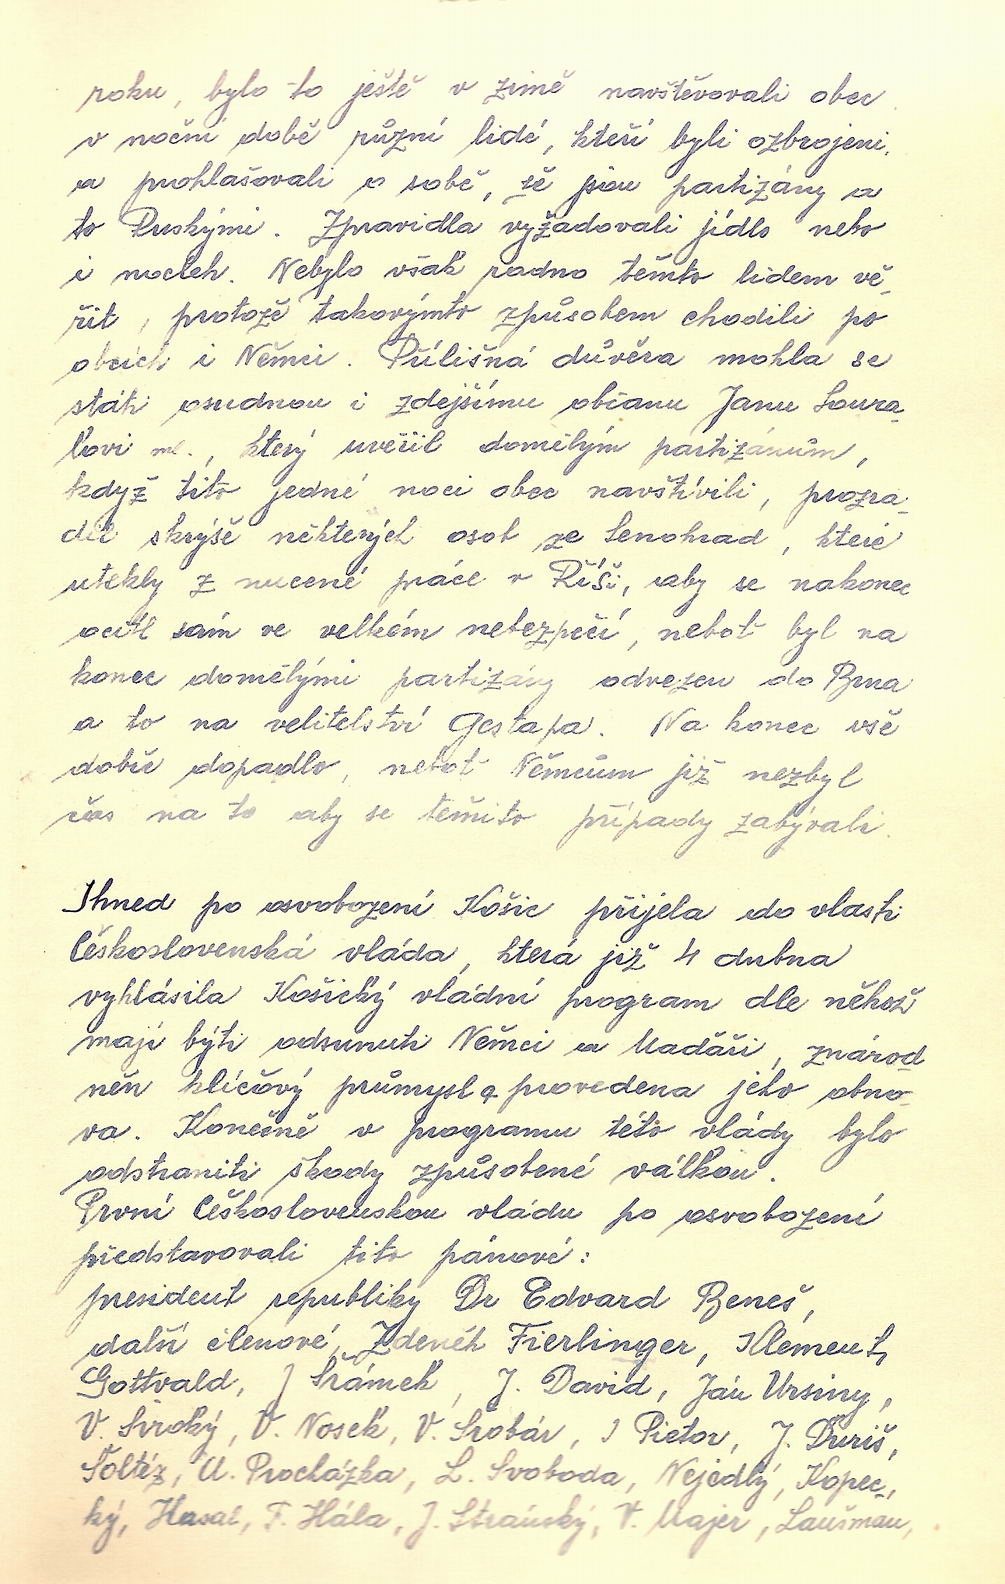 roku, bylo to ještě v zimě navštěvovali obec
v noční době různí lidé, kteří byli ozbrojeni,
a prohlašovali o sobě, že jsou partizány a
to Ruskými. Zpravidla vyžadovali jídlo nebo
i nocleh. Nebylo však radno těmto lidem vě-
řit, protože takovýmto způsobem chodili po
obcích i Němci. Přílišná důvěra mohla se
státi osudnou i zdejšímu občanu Janu Soura-
lovi ml., který uvěřil domělým partizánům,
když tito jedné noci obec navštívili, prozra-
dil skrýše některých osob ze Senohrad, které
utekly z nucené práce v Říši, aby se nakonec
ocitl sám ve velkém nebezpečí, neboť byl na
konec domělými partizány odvezen do Brna
a to na velitelství Gestapa. Na konec vše
dobře dopadlo, neboť Němcům již nezbyl
čas na to aby se těmito případy zabývali.
Ihned po osvobození Košic přijela do vlasti
Československá vláda, která již 4 dubna
vyhlásila Košický vládní program dle něhož
mají býti odsunuti Němci a Maďaři, znárod
něn klíčový průmysl a provedena jeho obno-
va. Konečně v programu této vlády bylo
odstraniti škody způsobené válkou.
První Československou vládu po osvobození
představovali tito pánové:
president republiky Dr Edvard Beneš,
další členové, Zdeněk Fierlinger, Klement,
Gottvald, J Šrámek, J. David, Ján Ursiny,
V. Široký, V. Nosek, V. Šrobár, J Pietor, J. Ďuriš,
Šoltéz, A. Procházka, L. Svoboda, Nejedlý, Kopec-,
ký, Hasal, F. Hála, J. Stránský, V. Majer, Laušman,